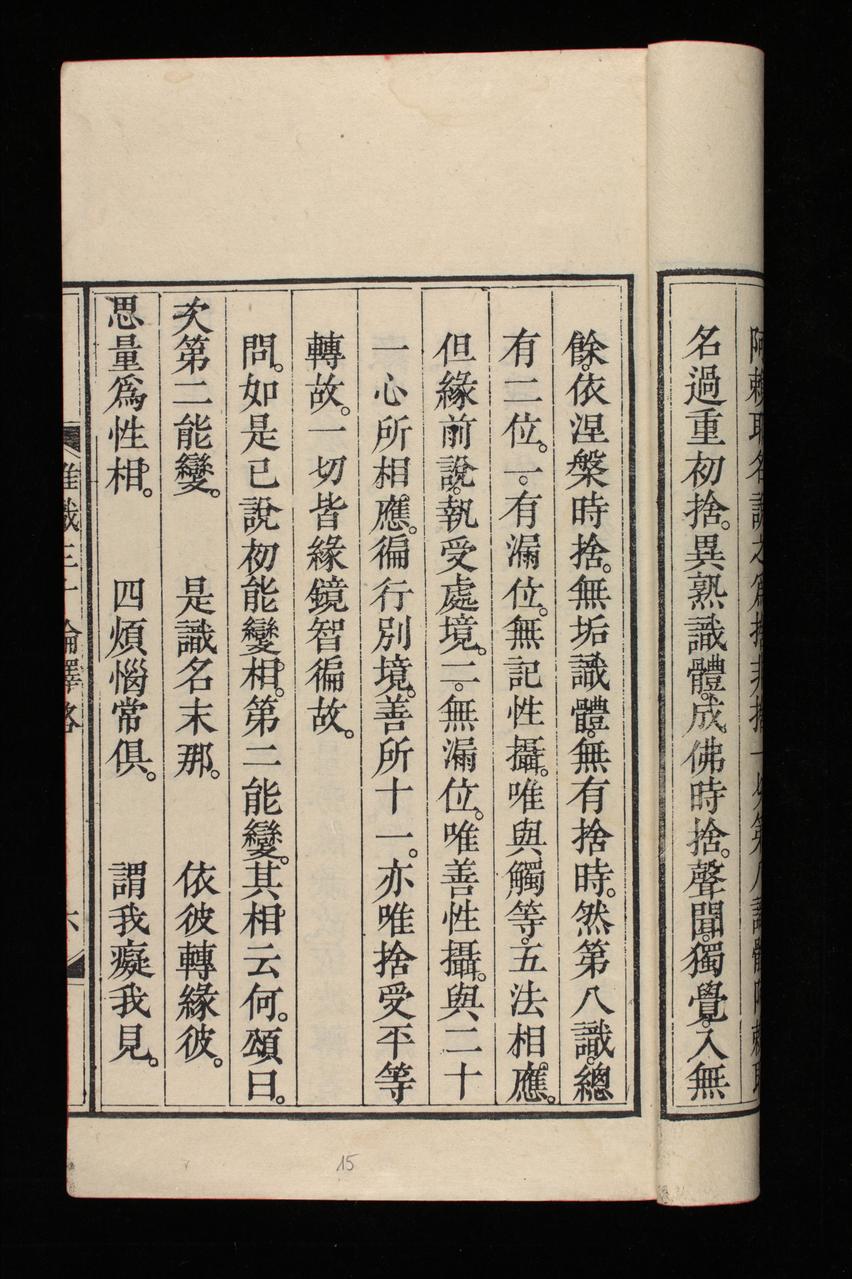 阿賴耶名
名過重初捨。異熟識體。成佛時捨。聲聞。獨覺。入無
餘。依涅槃時捨。無垢識體。無有捨時。然第八識。總
有二位。一。有漏位。無記性攝。唯與觸等。五法相應。
但緣前說。執受處境。二。無漏位。唯善性攝。與二十
一心所相應。徧行別境。善所十一。亦唯捨受。平等
轉故。一切皆緣鏡智徧故。
問。如是已說初能變相。第二能變。其相云何。頌曰。
次第二能變。　是識名末那。　依彼轉緣彼。
思量為性相。　四煩惱常俱。　謂我癡我見。
唯識三十論釋略　六
15